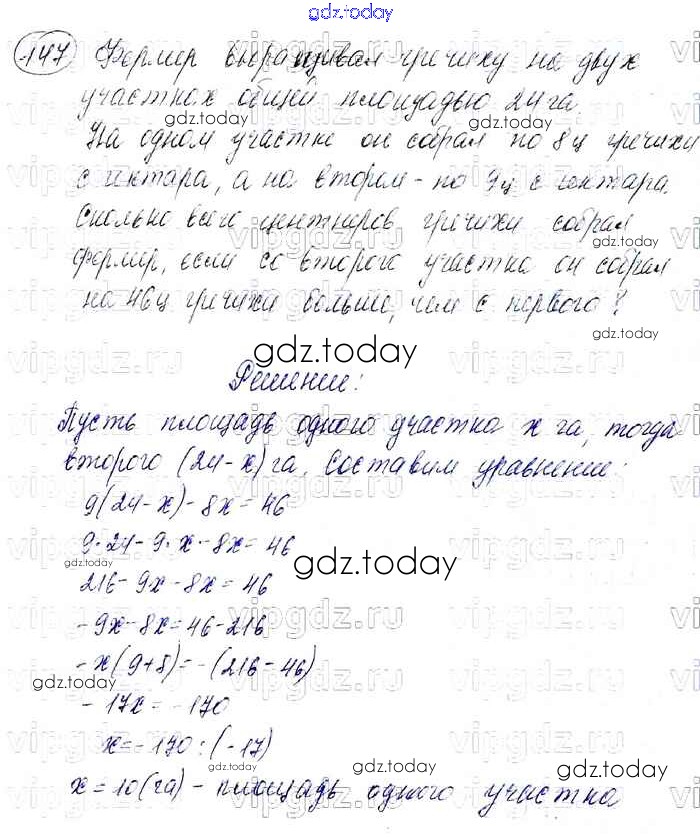 gdz.today
147 Фермер выращивал гречиху на двух
участках общей площадью 24 га.
На одном участке он собрал по 8 ц гречихи
с гектара, а на втором - по 9 ц с гектара.
Сколько всего центнеров гречихи собрал
фермер, если со второго участка он собрал
на 46 ц гречихи больше, чем с первого?
gdz.today
Решение:
Пусть площадь одного участка x га, тогда
второго (24-x) га. Составим уравнение:
9(24-x)-8x=46
9·24-9·x-8x=46
gdz.today
216-9x-8x=46
-9x-8x=46-216
-x(9+8)=-(216-46)
gdz.today
-17x=-170
x=-170:(-17)
x=10(га) - площадь одного участка
gdz.today